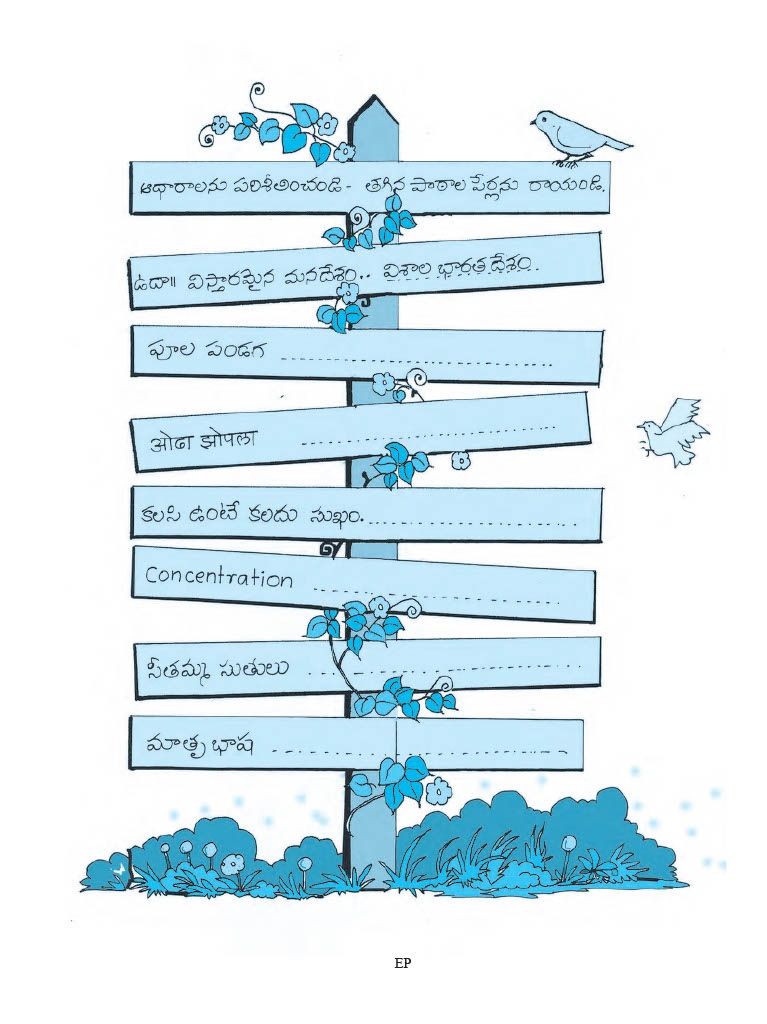 ఆధారాలను పరిశీలించండి - తగిన పాఠాల పేర్లను రాయండి.
ఉదా॥ విస్తారమైన మనదేశం.. విశాల భారత దేశం..
పూల పండగ
ओढा झोपला
కలసి ఉంటే కలదు సుఖం.
Concentration
సీతమ్మ సుతులు
మాతృ భాష
EP